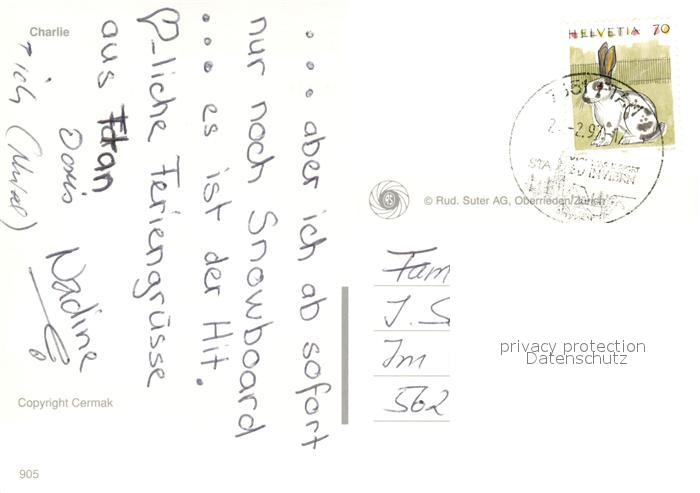 Charlie
... aber ich ab sofort
nur noch Snowboard
... es ist der Hit.
♡-liche Feriengrüsse
aus Ftan
Doris
Nadine
+ ich
Copyright Cermak
905
HELVETIA 70
© Rud. Suter AG, Oberrieden/Zürich
Fam
J. S
Im
562
privacy protection
Datenschutz